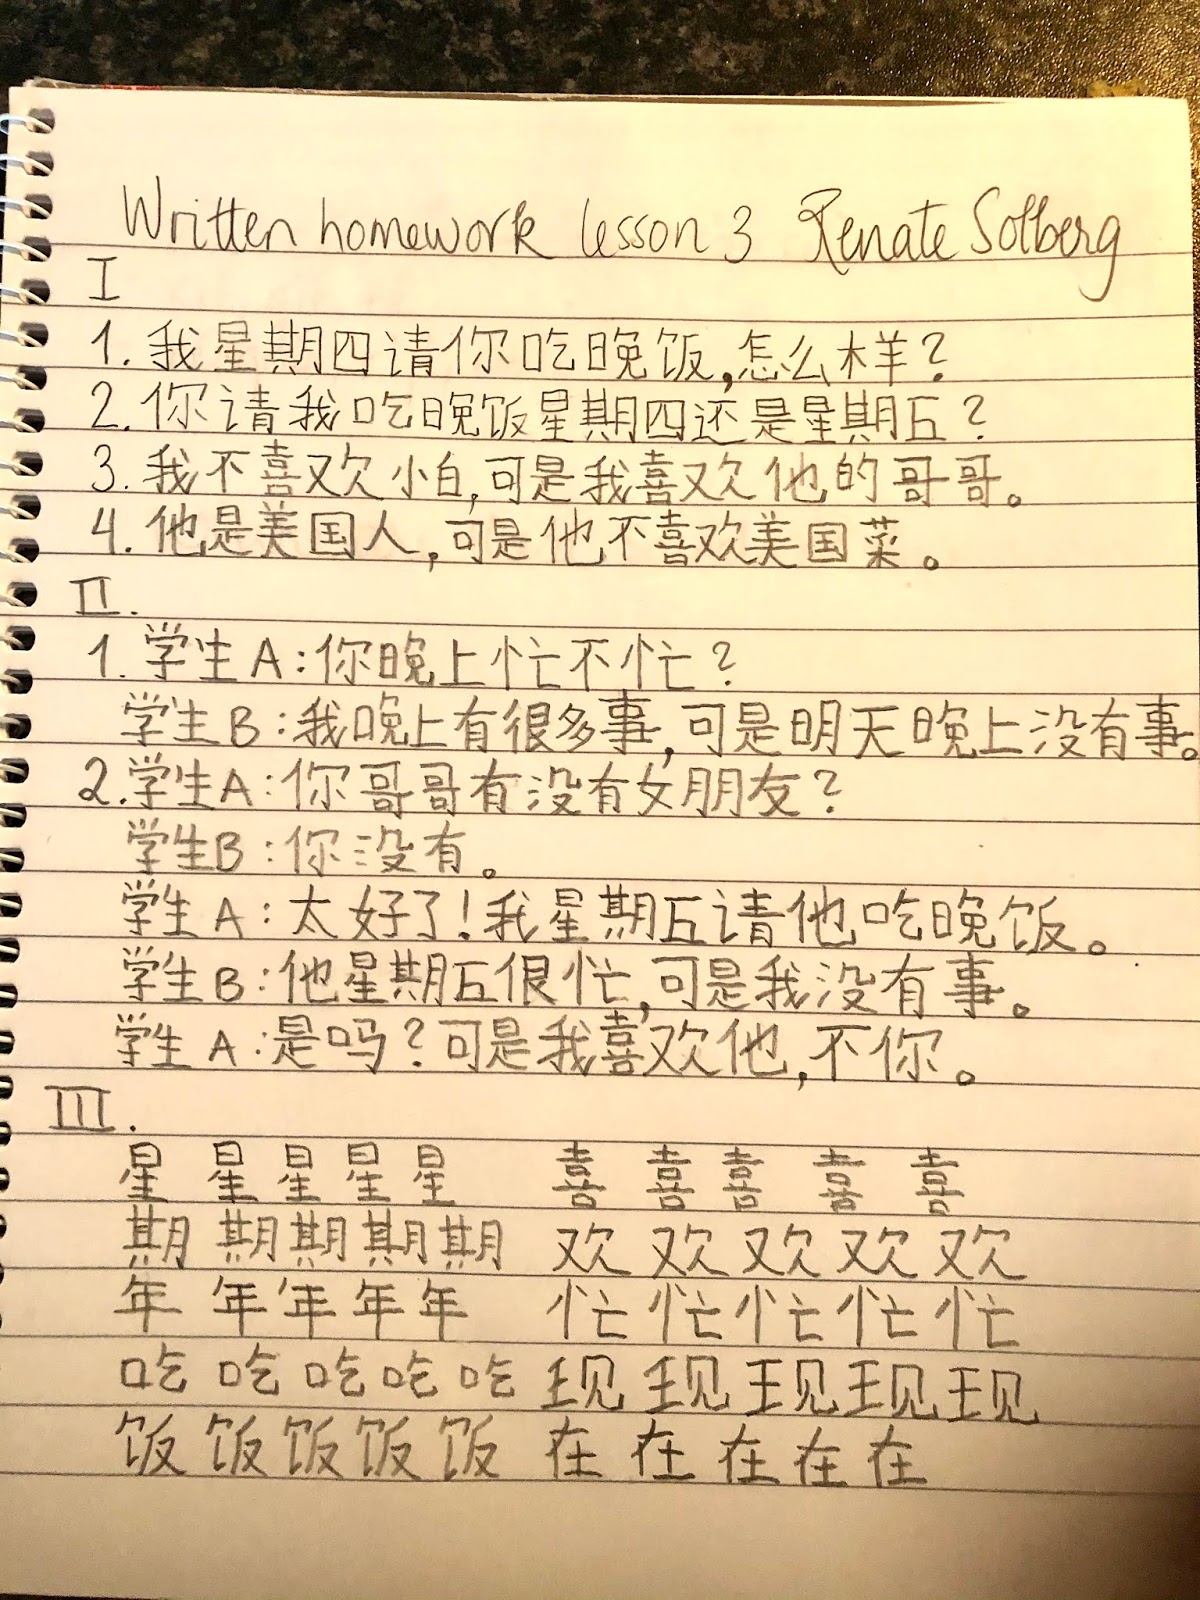 Written homework lesson 3 Renate Solberg
I
1. 我星期四请你吃晚饭,怎么样?
2. 你请我吃晚饭星期四还是星期五?
3. 我不喜欢小白,可是我喜欢他的哥哥。
4. 他是美国人,可是他不喜欢美国菜。
II.
1. 学生A:你晚上忙不忙?
学生B:我晚上有很多事,可是明天晚上没有事。
2. 学生A:你哥哥有没有女朋友?
学生B:你没有。
学生A:太好了!我星期五请他吃晚饭。
学生B:他星期五很忙,可是我没有事。
学生A:是吗?可是我喜欢他,不你。
III.
星 星 星 星 星 喜 喜 喜 喜 喜
期 期 期 期 期 欢 欢 欢 欢 欢
年 年 年 年 年 忙 忙 忙 忙 忙
吃 吃 吃 吃 吃 现 现 现 现 现
饭 饭 饭 饭 饭 在 在 在 在 在